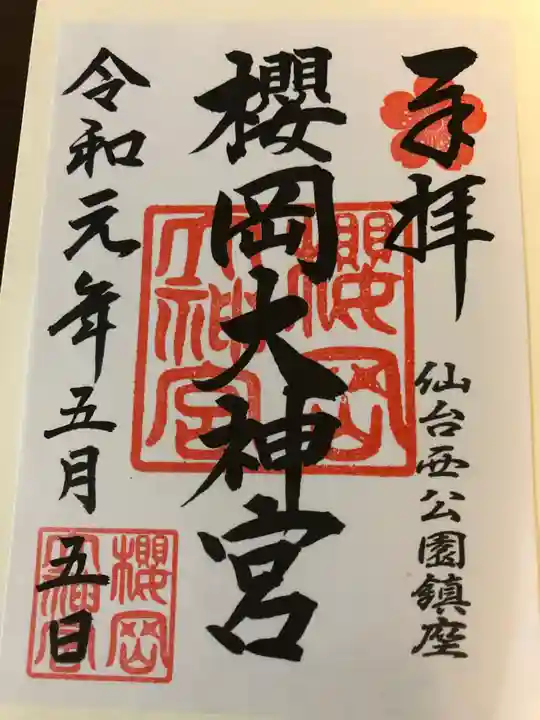 奉拝
仙台西公園鎮座
櫻岡大神宮
櫻岡大神宮
令和元年五月五日